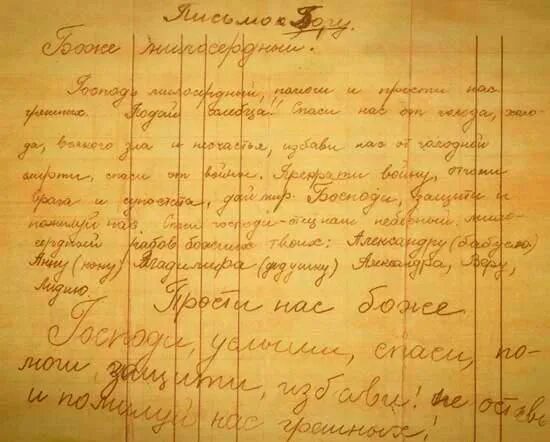 Письмо к Богу.
Боже милосердный.
Господи милосердный, помоги и прости нас
грешных. Подай хлебца!! Спаси нас от голода, холо-
да, всякого зла и несчастья, избави нас от голодной
смерти, спаси от войны. Прекрати войну, отгони
врага и супостата, дай мир. Господи, защити и
помилуй нас. Спаси господи-отец наш небесный. мило-
сердный рабов божьих твоих: Александру (бабуся)
Анну (маму) Владимира (дедушку) Александра, Веру,
Лидию.
Прости нас боже
Господи, услыши, спаси, по-
моги, защити, избави! не оставь
и помилуй нас грешных!